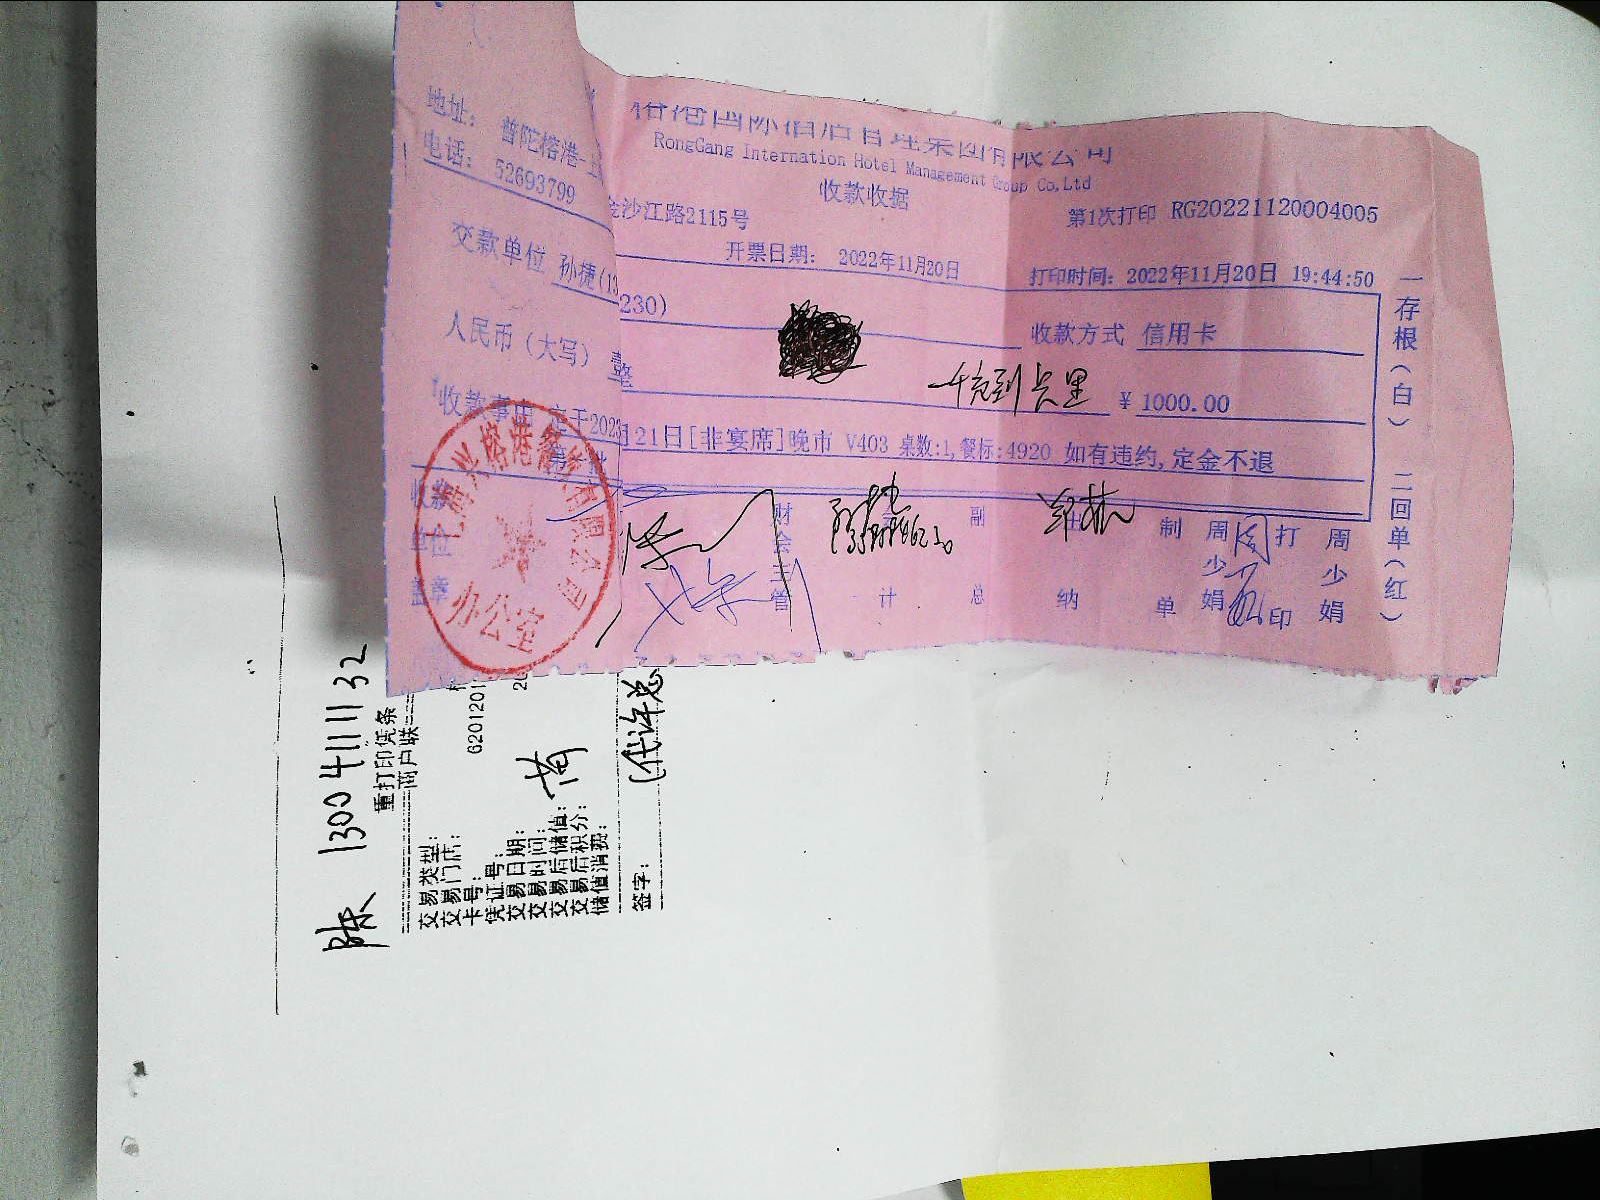 国际酒店管理集团有限公司
RongGang Internation Hotel Management Group Co,Ltd
收款收据
地址: 普陀榕港
金沙江路2115号
第1次打印 RG20221120004005
电话: 52693799
开票日期: 2022年11月20日
打印时间: 2022年11月20日 19:44:50
交款单位 孙捷(13
230)
收款方式 信用卡
人民币(大写)
整
¥ 1000.00
收款事由 定于202
月21日[非宴席]晚市 V403 桌数:1,餐标:4920 如有违约,定金不退
收款单位盖章
财会主管
会计
副总
出纳
制单 周少娟
打印 周少娟
一存根(白) 二回单(红)
榕港
有限公司
办公室
陈 13004111132
重打印凭条
商户联
交易类型:
交易门店:
卡号: 6201201
凭证号:
交易日期: 20
交易时间:
交易后储值:
交易后积分:
储值消费:
签字: (代许总